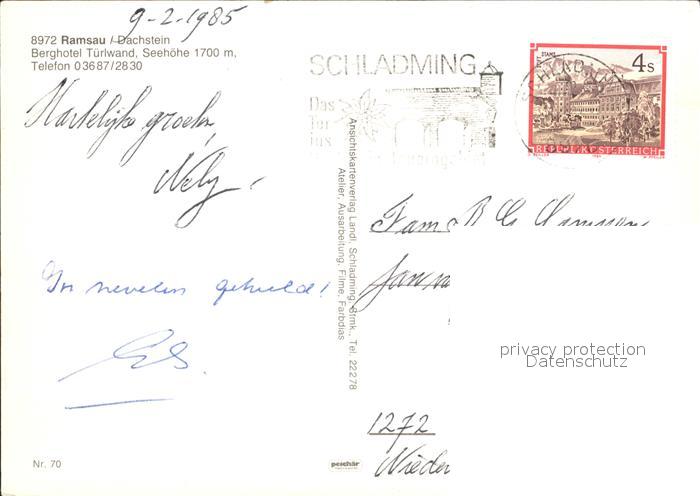 9-2-1985
8972 Ramsau / Dachstein
Berghotel Türlwand, Seehöhe 1700 m,
Telefon 03687/2830
SCHLADMING
Das
Tor
ins
STIFT STAMS
4 S
REPUBLIK ÖSTERREICH
Hartelijke groeten,
Nely,
In nevelen gehuld!
Ansichtskartenverlag Landl, Schladming, Stmk., Tel. 22278
Atelier, Ausarbeitung, Filme, Farbdias
Fam
privacy protection
Datenschutz
1272
Nieder
Nr. 70
peschär